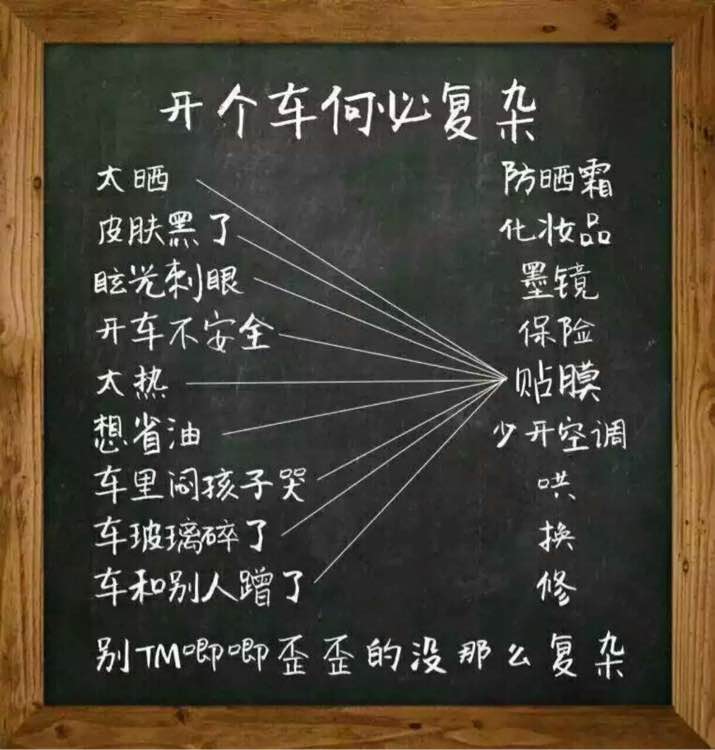 开个车何必复杂
太晒 防晒霜
皮肤黑了 化妆品
眩光刺眼 墨镜
开车不安全 保险
太热 贴膜
想省油 少开空调
车里闷孩子哭 哄
车玻璃碎了 换
车和别人蹭了 修
别TM唧唧歪歪的没那么复杂